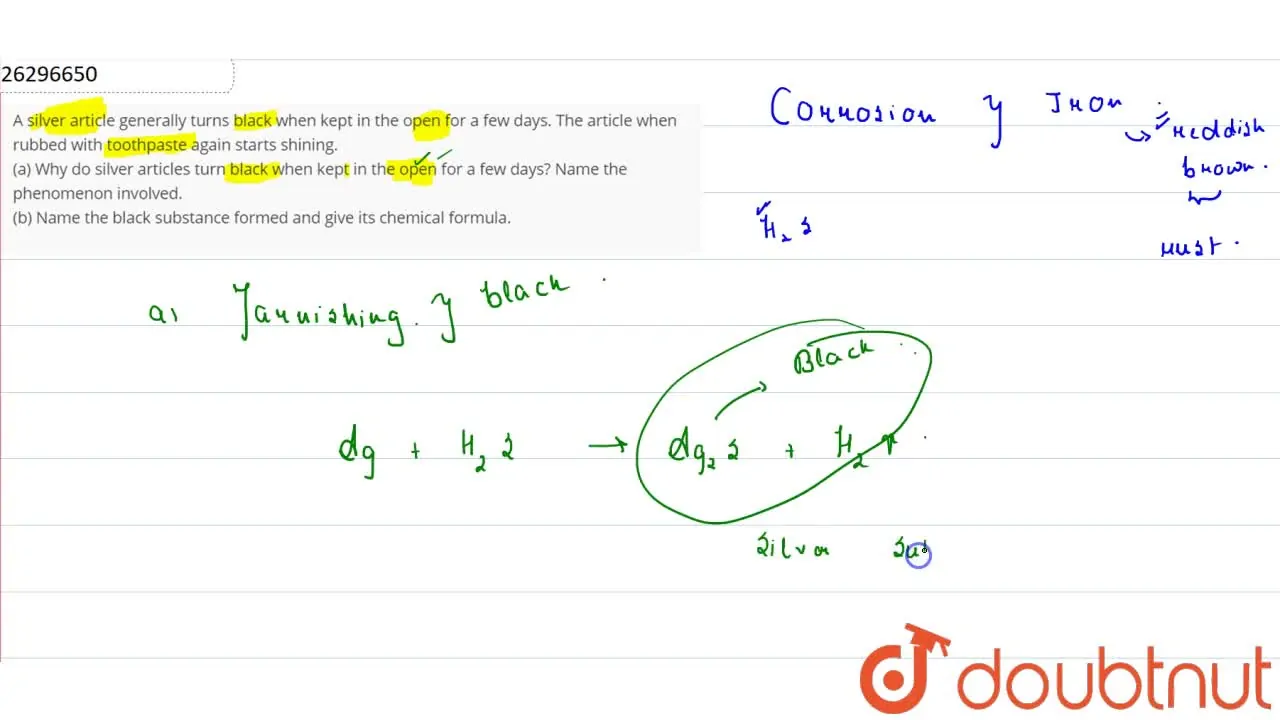 26296650
A silver article generally turns black when kept in the open for a few days. The article when
rubbed with toothpaste again starts shining.
(a) Why do silver articles turn black when kept in the open for a few days? Name the
phenomenon involved.
(b) Name the black substance formed and give its chemical formula.
Corrosion of Iron
reddish
brown.
rust.
H2S
a) Tarnishing of black
Black
Ag + H2S → Ag2S + H2 ↑
Silver Sul
doubtnut